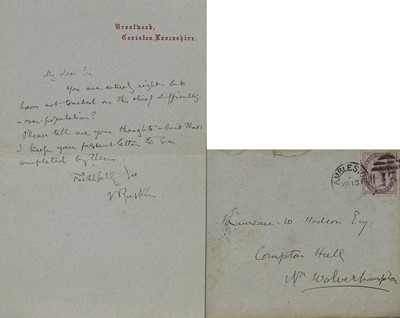 Brantwood,
Coniston, Lancashire.
My dear Sir
You are entirely right - but
have not touched on the chief difficulty
- over population?
Please tell me your thoughts about that
I keep your present letter to be
completed by them.
Faithfully Yrs
J Ruskin
AMBLESIDE
Laurence W Hodson Esq.
Compton Hall
Nr Wolverhampton